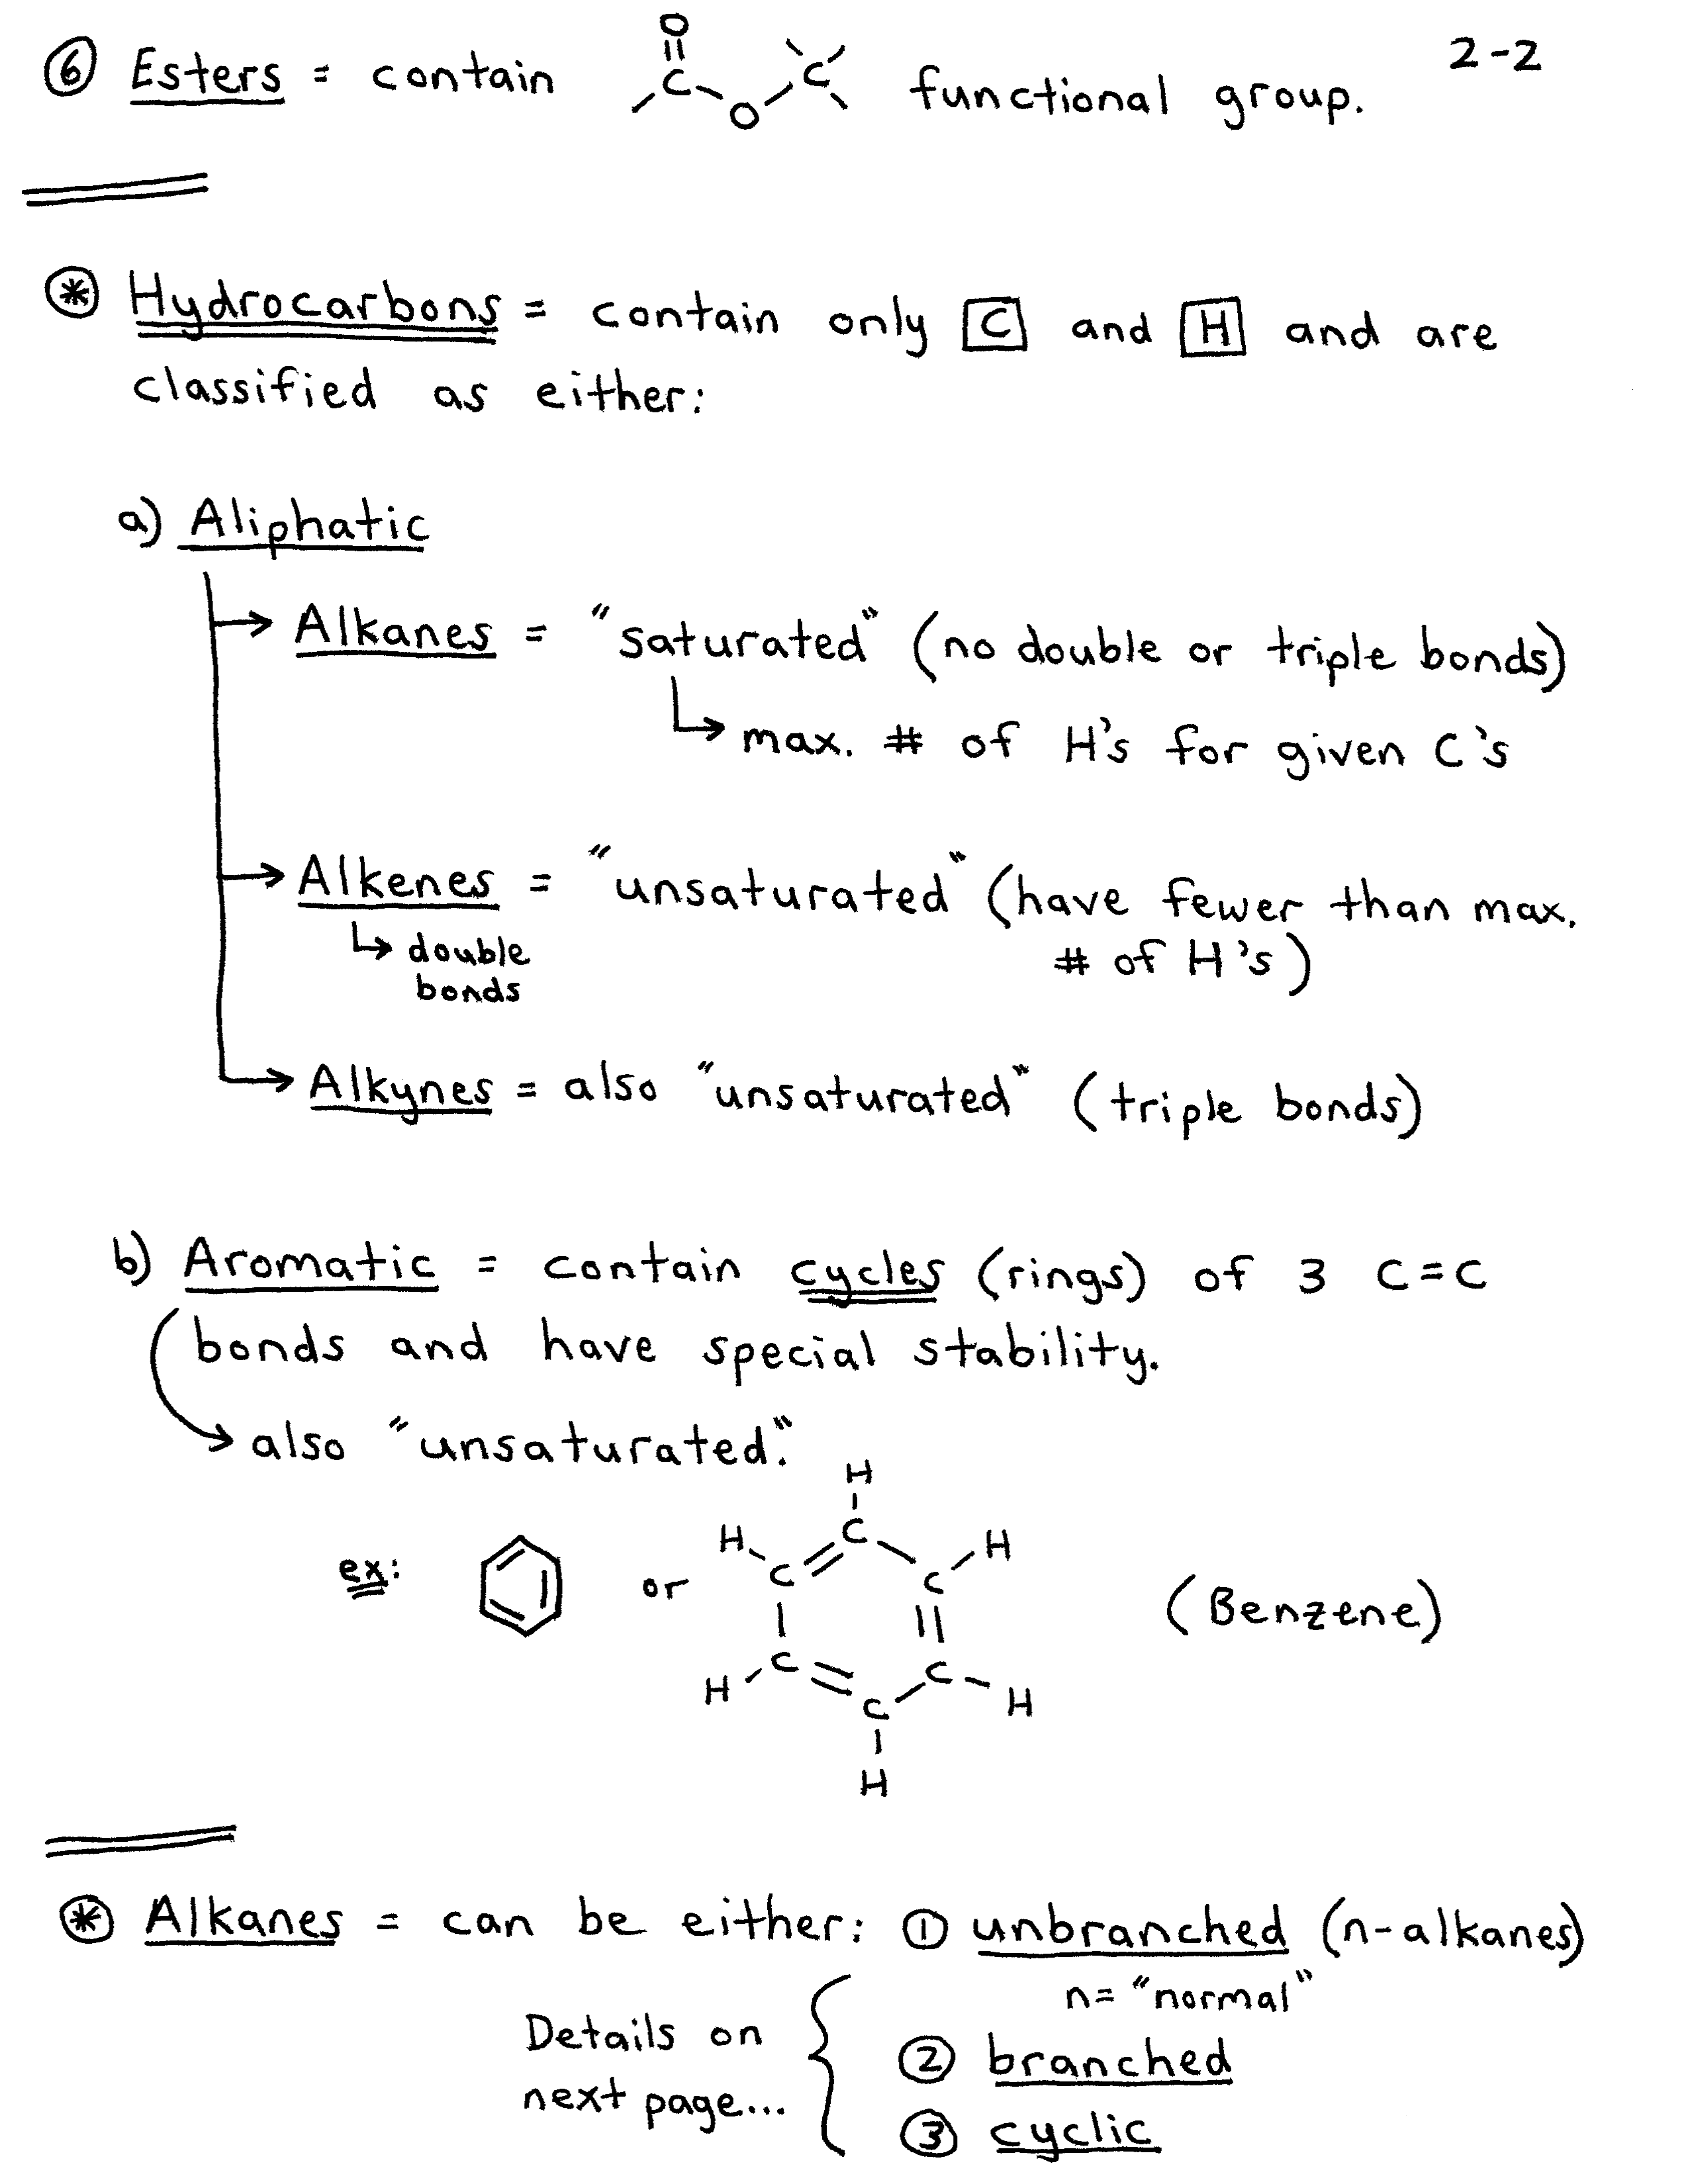 2-2
⑥ Esters = contain C O O C functional group.
⊛ Hydrocarbons = contain only C and H and are
classified as either:
a) Aliphatic
→ Alkanes = "saturated" (no double or triple bonds)
↳ max. # of H's for given C's
→ Alkenes = "unsaturated" (have fewer than max.
# of H's)
↳ double
bonds
→ Alkynes = also "unsaturated" (triple bonds)
b) Aromatic = contain cycles (rings) of 3 C=C
bonds and have special stability.
→ also "unsaturated."
ex: or (Benzene)
H
C
H C C H
H C C H
C
H
⊛ Alkanes = can be either: ① unbranched (n-alkanes)
n = "normal"
Details on
next page...
② branched
③ cyclic